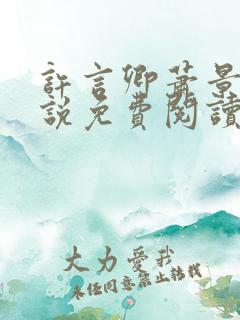 許言卿蕭景
說免費閱讀
大力愛我
未經同意禁止轉載